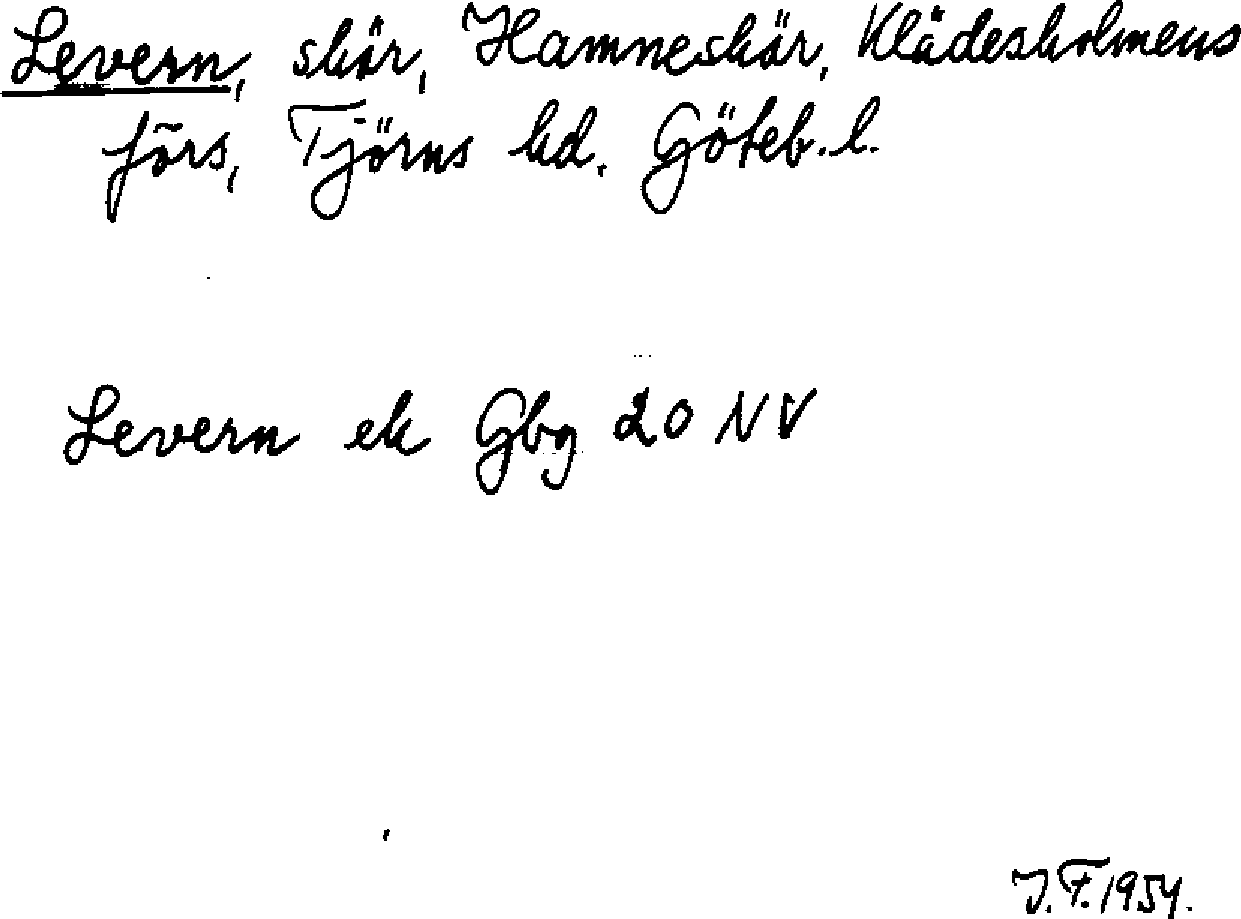 Levern, skär, Hamneskär, Klädesholmens
förs, Tjörns hd. Göteb. l.
Levern ek Gbg 20 NV
J. F. 1954.